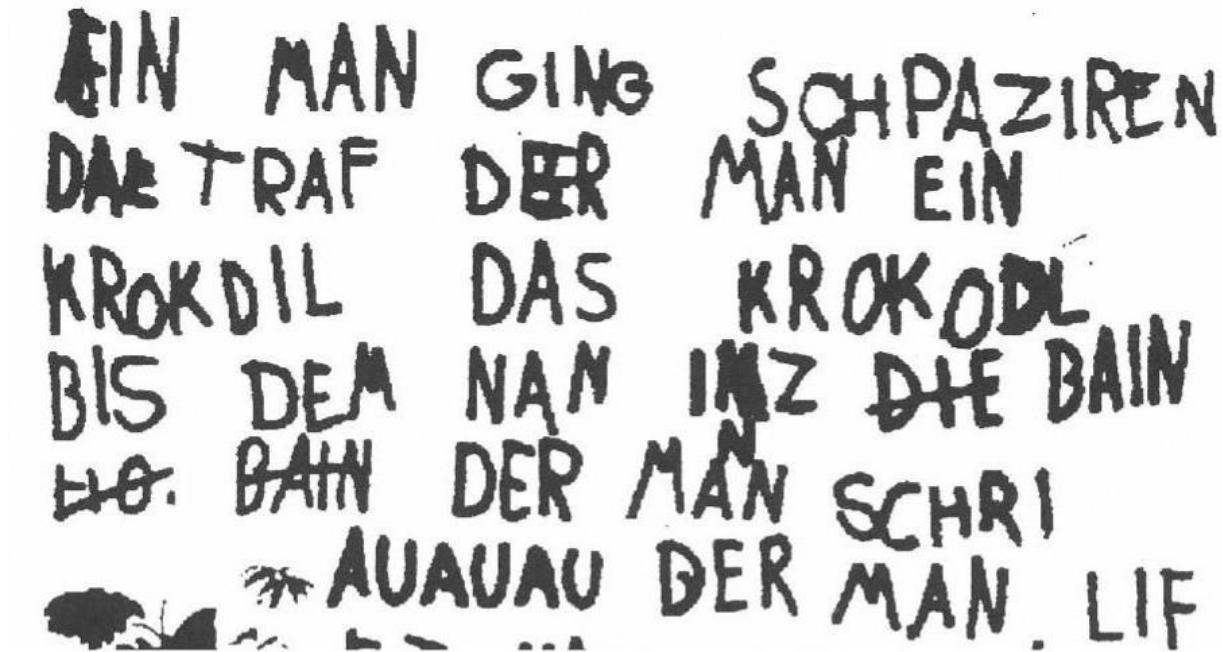 EIN MAN GING SCHPAZIREN
DA TRAF DER MAN EIN
KROKDIL DAS KROKODL
BIS DEM NAN INZ DIE BAIN
BAIN DER MANN SCHRI
AUAUAU DER MAN. LIF